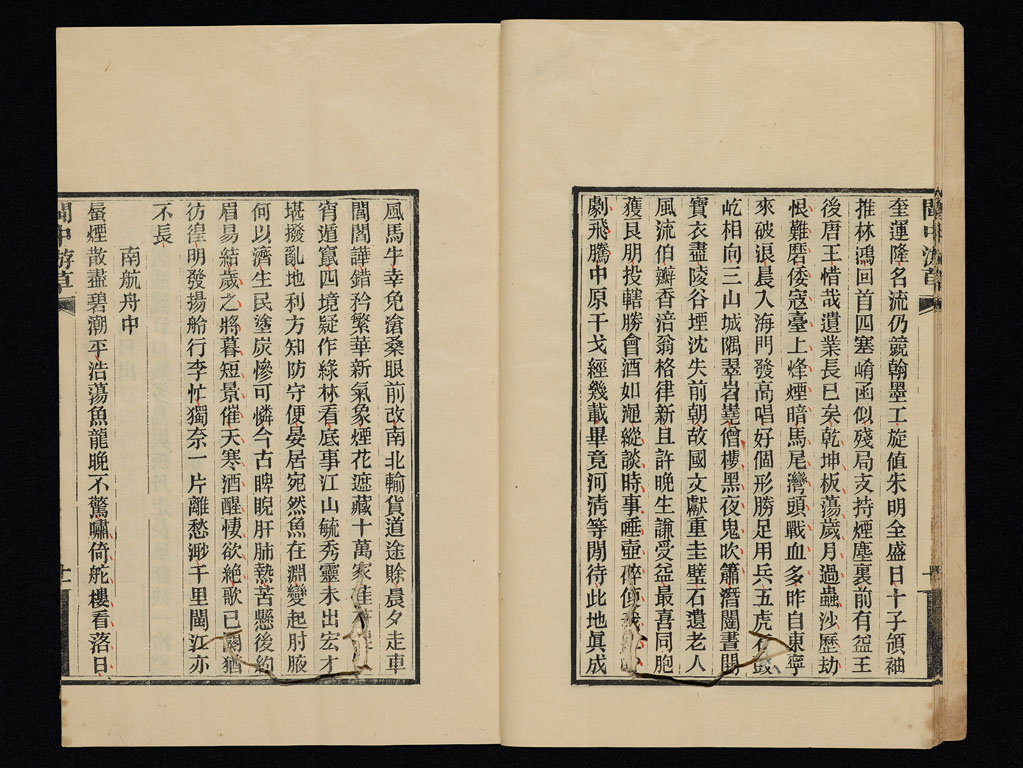 奎運隆名流仍競翰墨工旋值朱明全盛日十子領袖
推林鴻回首四塞崤函似殘局支持煙塵裏前有益王
後唐王惜哉遺業長已矣乾坤板蕩歲月過蟲沙歷劫
恨難磨倭寇臺上烽煙暗馬尾灣頭戰血多昨自東寧
來破浪晨入海門發高唱好個形勝足用兵五虎
屹相向三山城隅翠岩嶤僧樓黑夜鬼吹簫潛闥晝閉
寶衣盡陵谷堙沈失前朝故國文獻重圭璧石遺老人
風流伯瓣香涪翁格律新且許晚生謙受益最喜同胞
獲良朋投轄勝會酒如澠縱談時事唾壺碎
劇飛騰中原干戈經幾載畢竟河清等閒待此地眞成
風馬牛幸免滄桑眼前改南北輸貨道途賒晨夕走車
閩閤譁錯矜繁華新氣象煙花遮藏十萬家
宵遁竄四境疑作綠林看底事江山毓秀靈未出宏才
堪撥亂地利方知防守便晏居宛然魚在淵變起肘腋
何以濟生民塗炭慘可憐今古睥睨肝肺熱苦懸後約
眉易結歲之將暮短景催天寒酒醒悽欲絶歌已闌猶
彷徨明發揚舲行李忙獨奈一片離愁渺千里閩江亦
不長
南航舟中
蜃煙散盡碧潮平浩蕩魚龍晚不驚嘯倚舵樓看落日
閩中游草
十一